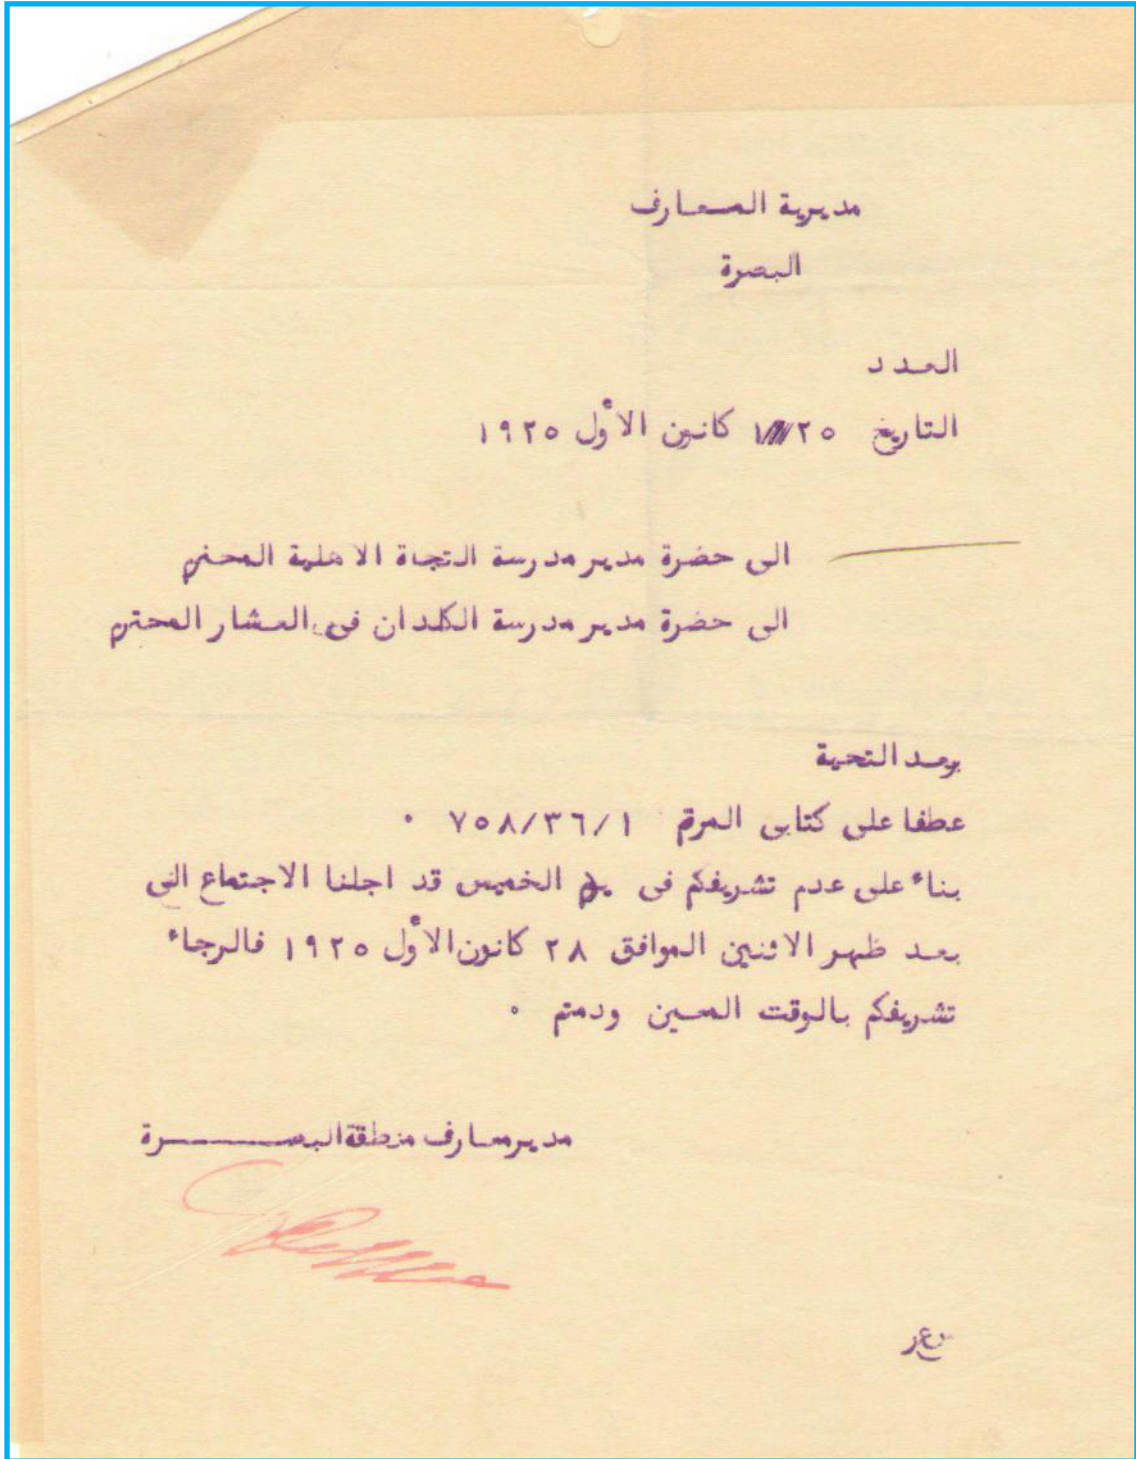 مديرية المعارف
البصرة
العدد
التاريخ ٢٥ كانين الاول ١٩٢٥
الى حضرة مدير مدرسة التجاة الاهلية المحترم
الى حضرة مدير مدرسة الكلدان في العشار المحترم
وبعد التحية
عطفا على كتابي المرقم ٧٥٨/٣٦/١ .
بناء على عدم تشريفكم في يوم الخميس قد اجلنا الاجتماع الى
بعد ظهر الاثنين الموافق ٢٨ كانون الاول ١٩٢٥ فالرجاء
تشريفكم بالوقت المعين ودمتم .
مدير معارف منطقة البصرة